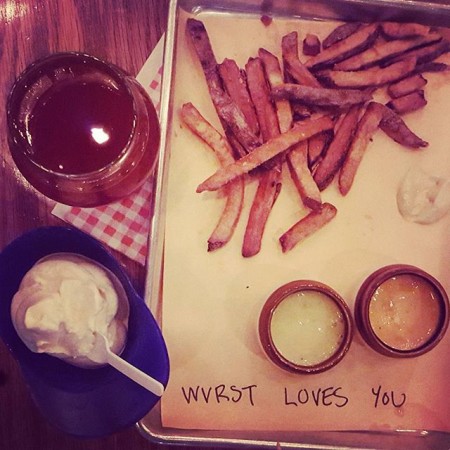 WVRST LOVES YOU